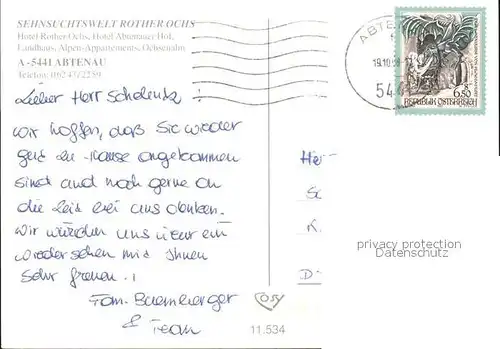 SEHNSUCHTSWELT ROTHER OCHS
Hotel Rother Ochs, Hotel Abtenauer Hof,
Landhaus, Alpen-Appartements, Ochsenalm
A - 5441 ABTENAU
Telefon: 06243/2259
ABTEN
19.10.
544
6.50
REPUBLIK ÖSTERREICH
Lieber Herr
wir hoffen, daß Sie wieder
gut zu Hause angekommen
sind und noch gerne an
die Zeit bei uns denken.
Wir würden uns über ein
wiedersehen mit Ihnen
sehr freuen !
Fam.
& Team
Her
K.
D
privacy protection
Datenschutz
11.534